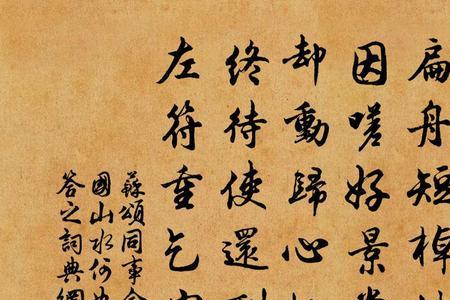 扁舟短棹
因嗟好景
却動歸心
終待使還
左符重乞
蘇頌同事
國山水何
答之詞典網